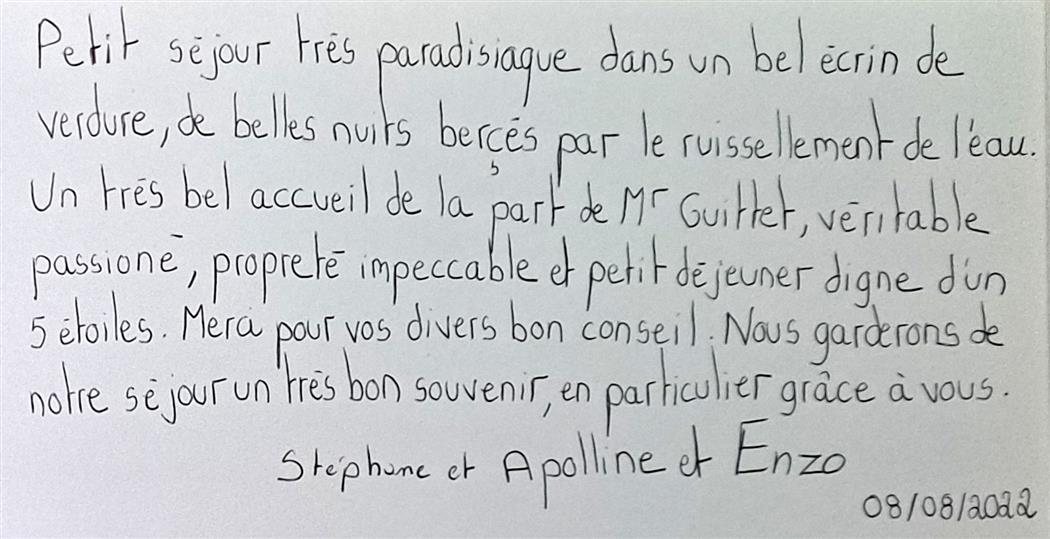 Petit séjour très paradisiaque dans un bel écrin de
verdure, de belles nuits bercés par le ruissellement de l'éau.
Un très bel accueil de la part de Mr Guittet, véritable
passioné, propreté impeccable et petit déjeuner digne d'un
5 étoiles. Merci pour vos divers bon conseil. Nous garderons de
notre séjour un très bon souvenir, en particulier grâce à vous.
Stéphane et Apolline et Enzo
08/08/2022